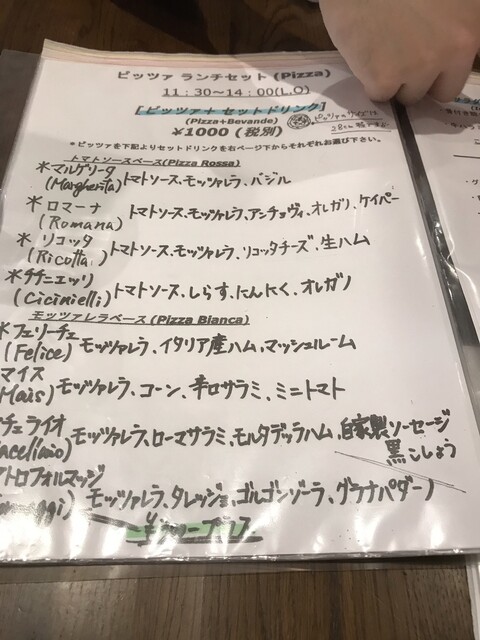 ピッツァ ランチセット (Pizza)
11：30～14：00(L.O)
[ピッツァ+セットドリンク]
(Pizza+Bevande)
¥1000 (税別)
28cm
*ピッツァを下記よりセットドリンクを右ページ下からそれぞれお選び下さい。
トマトソースベース(Pizza Rossa)
*マルゲリータ
(Margherita) トマトソース、モッツァレラ、バジル
*ロマーナ
(Romana) トマトソース、モッツァレラ、アンチョヴィ、オレガノ、ケイパー
*リコッタ
(Ricotta) トマトソース、モッツァレラ、リコッタチーズ、生ハム
*チチニエッリ
(Cicinielli) トマトソース、しらす、にんにく、オレガノ
モッツァレラベース(Pizza Bianca)
*フェリーチェ
(Felice) モッツァレラ、イタリア産ハム、マッシュルーム
マイス
(Mais) モッツァレラ、コーン、辛口サラミ、ミニトマト
チェライオ
モッツァレラ、ローマサラミ、モルタデッラハム、自家製ソーセージ
黒こしょう
トロフォルマッジ
モッツァレラ、タレッジョ、ゴルゴンゾーラ、グラナパダーノ